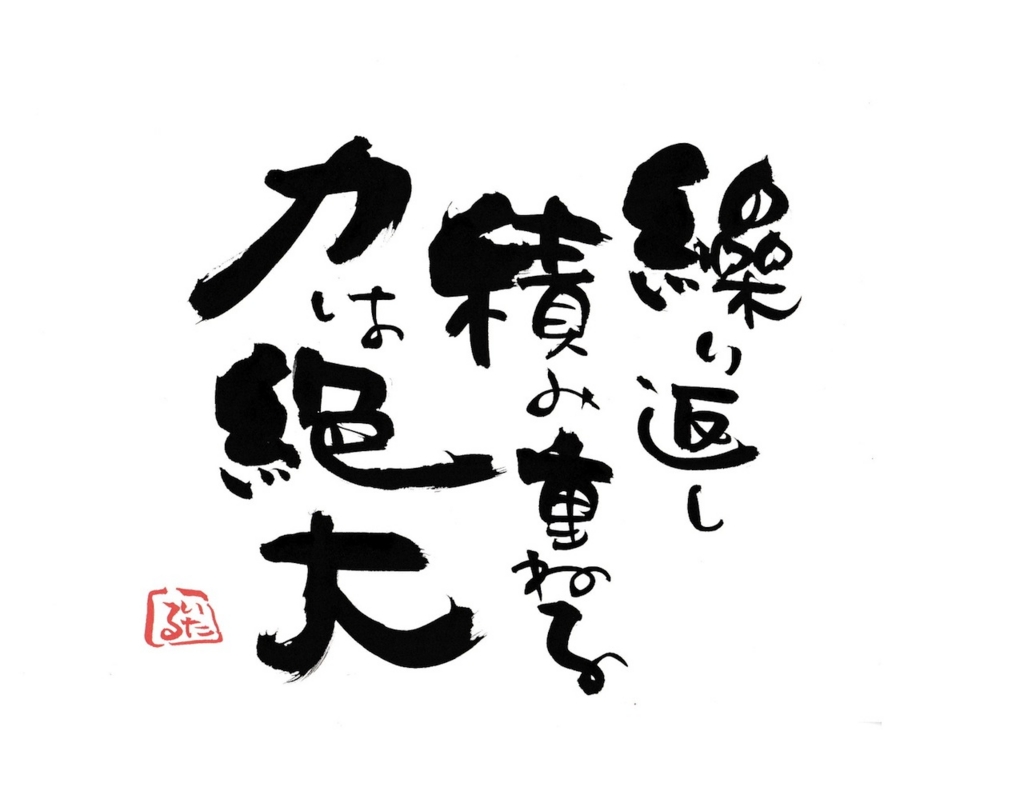 繰り返し
積み重ねる
力は絶大
いたる